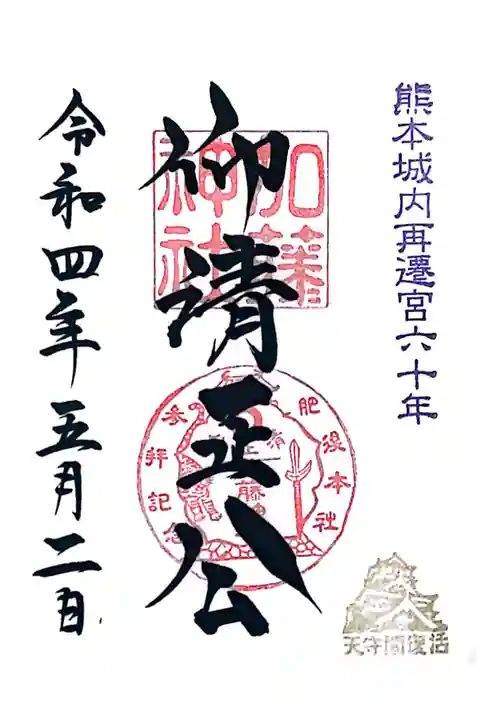 熊本城内再遷宮六十年
加藤
神社
仰清正公
肥後本社
参拝記念
令和四年五月二日
天守閣復活